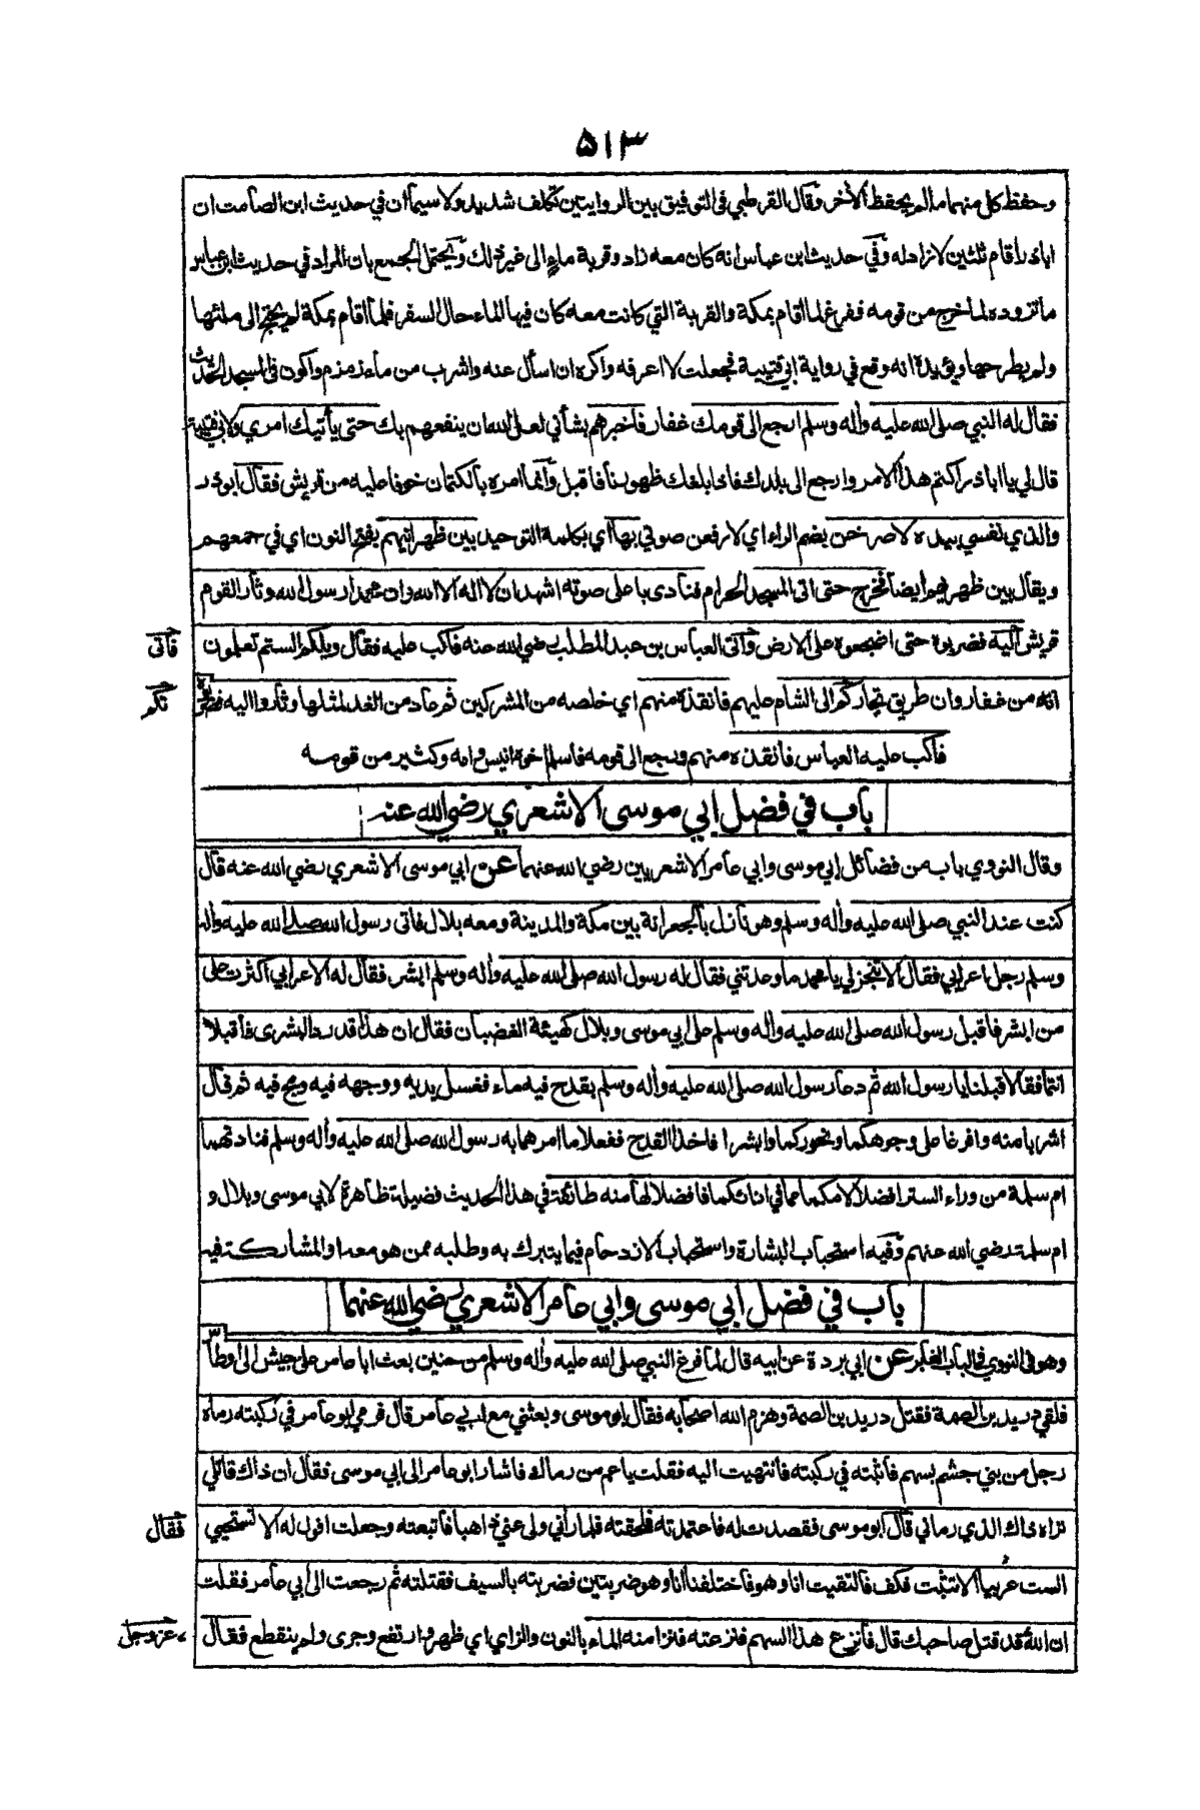 ۵۱۳
وحفظ كل منهما ما لم يحفظ الآخر وقال القرطبي في التوفيق بين الروايتين تكلف شديد ولا سيما ان في حديث ابن الصامت ان
اباذر اقام ثلثين لا زاد له وفي حديث ابن عباس انه كان معه زاد وقربة ماء الى غير ذلك ويحتمل الجمع بان المراد في حديث ابن عباس
ما تزوده لما خرج من قومه ففرغ لما اقام بمكة والقربة التي كانت معه كان فيها الماء حال السفر فلما اقام بمكة لم يحتج الى ملئها
ولم يطرحها ويؤيده انه وقع في رواية ابي قتيبة فجعلت لا اعرفه واكره ان اسأل عنه واشرب من ماء زمزم واكون في المسجد الحديث
فقال له النبي صلى الله عليه وأله وسلم ارجع الى قومك غفار فاخبرهم بشأني لعل الله ان ينفعهم بك حتى يأتيك امري ولابي قتيبة
قال لي يا اباذر اكتم هذا الامر وارجع الى بلدك فاذا بلغك ظهورنا فاقبل وانما امره بالكتمان خوفا عليه من قريش فقال ابوذر
والذي نفسي بيده لاصرخن بضم الراء اي لارفعن صوتي بها اي بكلمة التوحيد بين ظهرانيهم بفتح النون اي في جمعهم
ويقال بين ظهريهم ايضا فخرج حتى اتى المسجد الحرام فنادى باعلى صوته اشهد ان لا اله الا الله وان محمدا رسول الله وثار القوم
قريش اليه فضربوه حتى اضجعوه على الارض وأتى العباس بن عبد المطلب رضي الله عنه فاكب عليه فقال ويلكم الستم تعلمون
فأتى
انه من غفار وان طريق تجاركم الى الشام عليهم فانقذه منهم اي خلصه من المشركين ثم عاد من الغد لمثلها وثاروا اليه فضربوه
نكم
فاكب عليه العباس فانقذه منهم ورجع الى قومه فاسلم اخوه انيس وامه وكثير من قومه
باب في فضل ابي موسى الاشعري رضي الله عنه
وقال النووي باب من فضائل ابي موسى وابي عامر الاشعريين رضي الله عنهما عن ابي موسى الاشعري رضي الله عنه قال
كنت عند النبي صلى الله عليه وأله وسلم وهو نازل بالجعرانة بين مكة والمدينة ومعه بلال فاتى رسول الله صلى الله عليه وأله
وسلم رجل اعرابي فقال الا تنجز لي يا محمد ما وعدتني فقال له رسول الله صلى الله عليه وأله وسلم ابشر فقال له الاعرابي اكثرت علي
من ابشر فاقبل رسول الله صلى الله عليه وأله وسلم على ابي موسى وبلال كهيئة الغضبان فقال ان هذا قد رد البشرى فاقبلا
انتما فقالا قبلنا يا رسول الله ثم دعا رسول الله صلى الله عليه وأله وسلم بقدح فيه ماء فغسل يديه ووجهه فيه ومج فيه ثم قال
اشربا منه وافرغا على وجوهكما ونحوركما وابشرا فاخذا القدح ففعلا ما امرهما به رسول الله صلى الله عليه وأله وسلم فنادتهما
ام سلمة من وراء الستر افضلا لامكما مما في انائكما فافضلا لها منه طائفة في هذا الحديث فضيلة ظاهرة لابي موسى وبلال و
ام سلمة رضي الله عنهم وفيه استحباب البشارة واستحباب الازدحام فيما يتبرك به وطلبه ممن هو معه والمشاركة فيه
باب في فضل ابي موسى وابي عامر الاشعري رضي الله عنهما
وهو في النووي في الباب الغابر عن ابي بردة عن ابيه قال لما فرغ النبي صلى الله عليه وأله وسلم من حنين بعث ابا عامر على جيش الى اوطاس
فلقي دريد بن الصمة فقتل دريد بن الصمة وهزم الله اصحابه فقال ابو موسى وبعثني مع ابي عامر قال فرمي ابو عامر في ركبته رماه
رجل من بني جشم بسهم فاثبته في ركبته فانتهيت اليه فقلت يا عم من رماك فاشار ابو عامر الى ابي موسى فقال ان ذاك قاتلي
تراه ذاك الذي رماني قال ابو موسى فقصدت له فاعتمدته فلحقته فلما رأني ولى عني ذاهبا فاتبعته وجعلت اقول له الا تستحيي
فقال
الست عربيا الا تثبت فكف فالتقيت انا وهو فاختلفنا انا وهو ضربتين فضربته بالسيف فقتلته ثم رجعت الى ابي عامر فقلت
ان الله قد قتل صاحبك قال فانزع هذا السهم فنزعته فنزا منه الماء بالنون والزاي اي ظهر وارتفع وجرى ولم ينقطع فقال
عز وجل